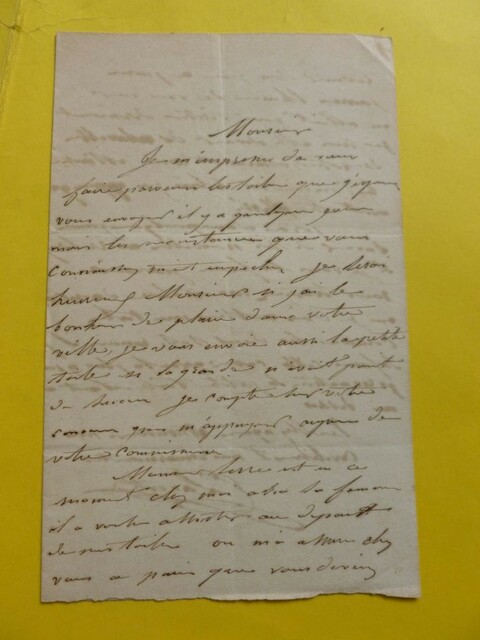 Monsieur
Je m'empresse de vous
faire parvenir les toiles que j'ai pu
vous envoyer il y a quelques jours
mais les circonstances que vous
connaissez m'ont empeché je serai
heureux Monsieur si j'ai le
bonheur de plaire dans votre
ville je vous envoie aussi la petite
toile si la grande n'avait point
de succes je compte sur votre
concours pour m'appuyer aupres de
votre commission
Monsieur est en ce
moment chez moi avec sa femme
il a voulu assister au depart
de mes toiles on m'a assuré chez
vous a paris que vous deviez